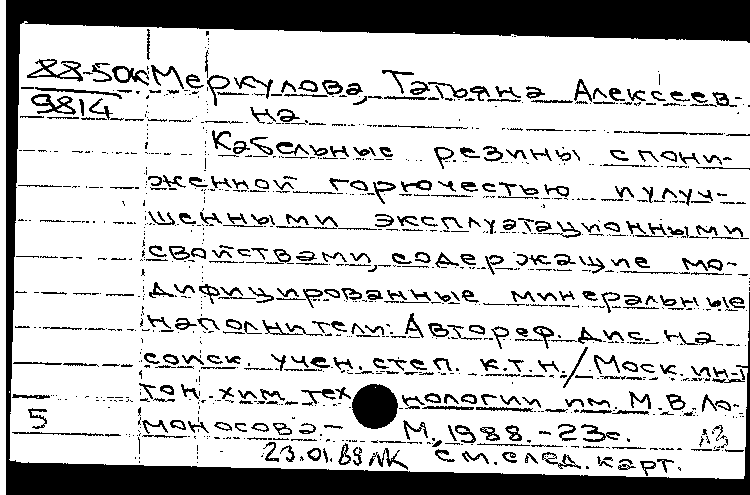 88-50к Меркулова, Татьяна Алексеев-
9814 на.
Кабельные резины с пони-
женной горючестью и улуч-
шенными эксплуатационными
свойствами, содержащие мо-
дифицированные минеральные
наполнители: Автореф. дис. на
соиск. учен. степ. к.т.н. / Моск. ин-т
тон. хим. тех нологии им. М.В. Ло-
5 моносова.- М., 1988. - 23с.
23.01.89 см. след. карт.